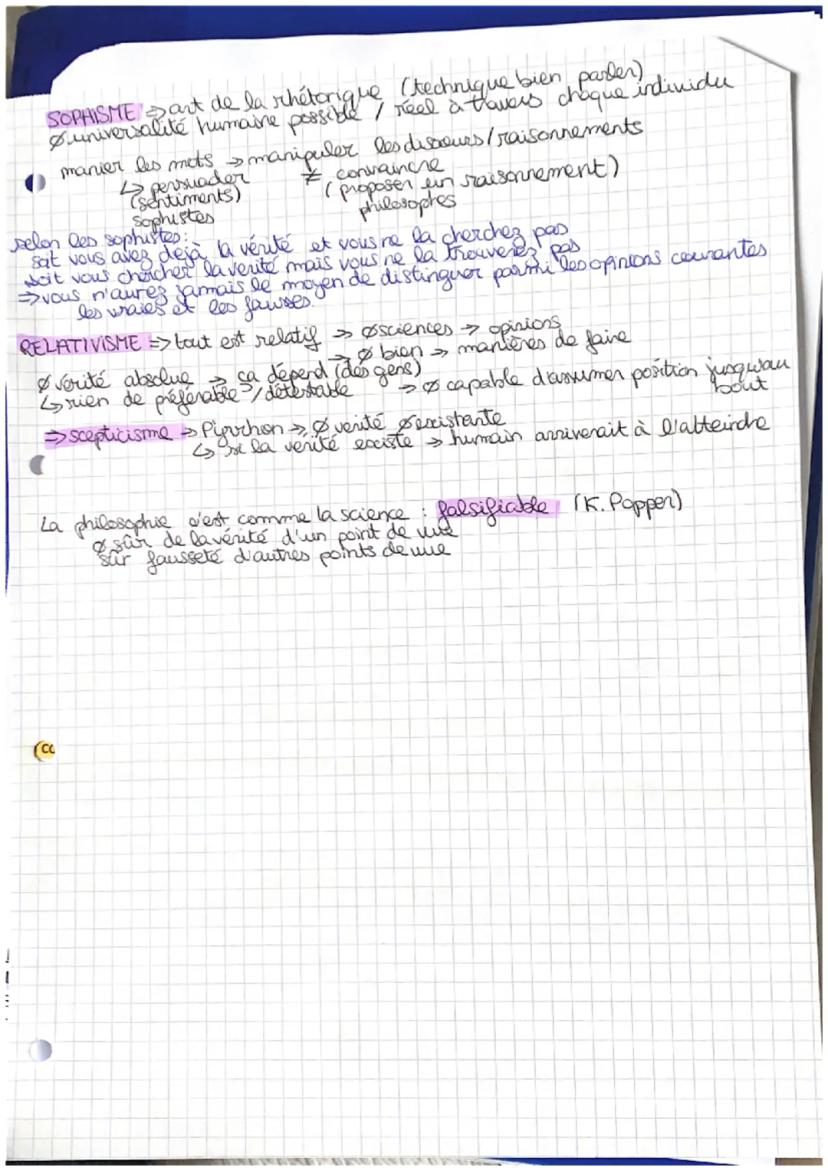 SOPHISME => art de la rhétorique (technique bien parler)
Ø universalité humaine possible / réel à travers chaque individu
manier les mots → manipuler les discours/raisonnements
↳ persuader ≠ convaincre
(sentiments) (proposer un raisonnement)
sophistes philosophes
selon les sophistes :
soit vous avez déjà la vérité et vous ne la cherchez pas
soit vous chercher la vérité mais vous ne la trouverez pas
=> vous n'aurez jamais le moyen de distinguer parmi les opinions courantes
les vraies et les fausses.
RELATIVISME => tout est relatif → Ø sciences → opinions
→ Ø bien → manières de faire
Ø vérité absolue → ça dépend (des gens)
↳ rien de préférable / détestable → Ø capable d'assumer position jusqu'au
bout
=> scepticisme → Pyrrhon → Ø vérité Ø existante
↳ si la vérité existe → humain arriverait à l'atteindre
La philosophie c'est comme la science : falsifiable (K. Popper)
Ø sûr de la vérité d'un point de vue
sûr fausseté d'autres points de vue
CC